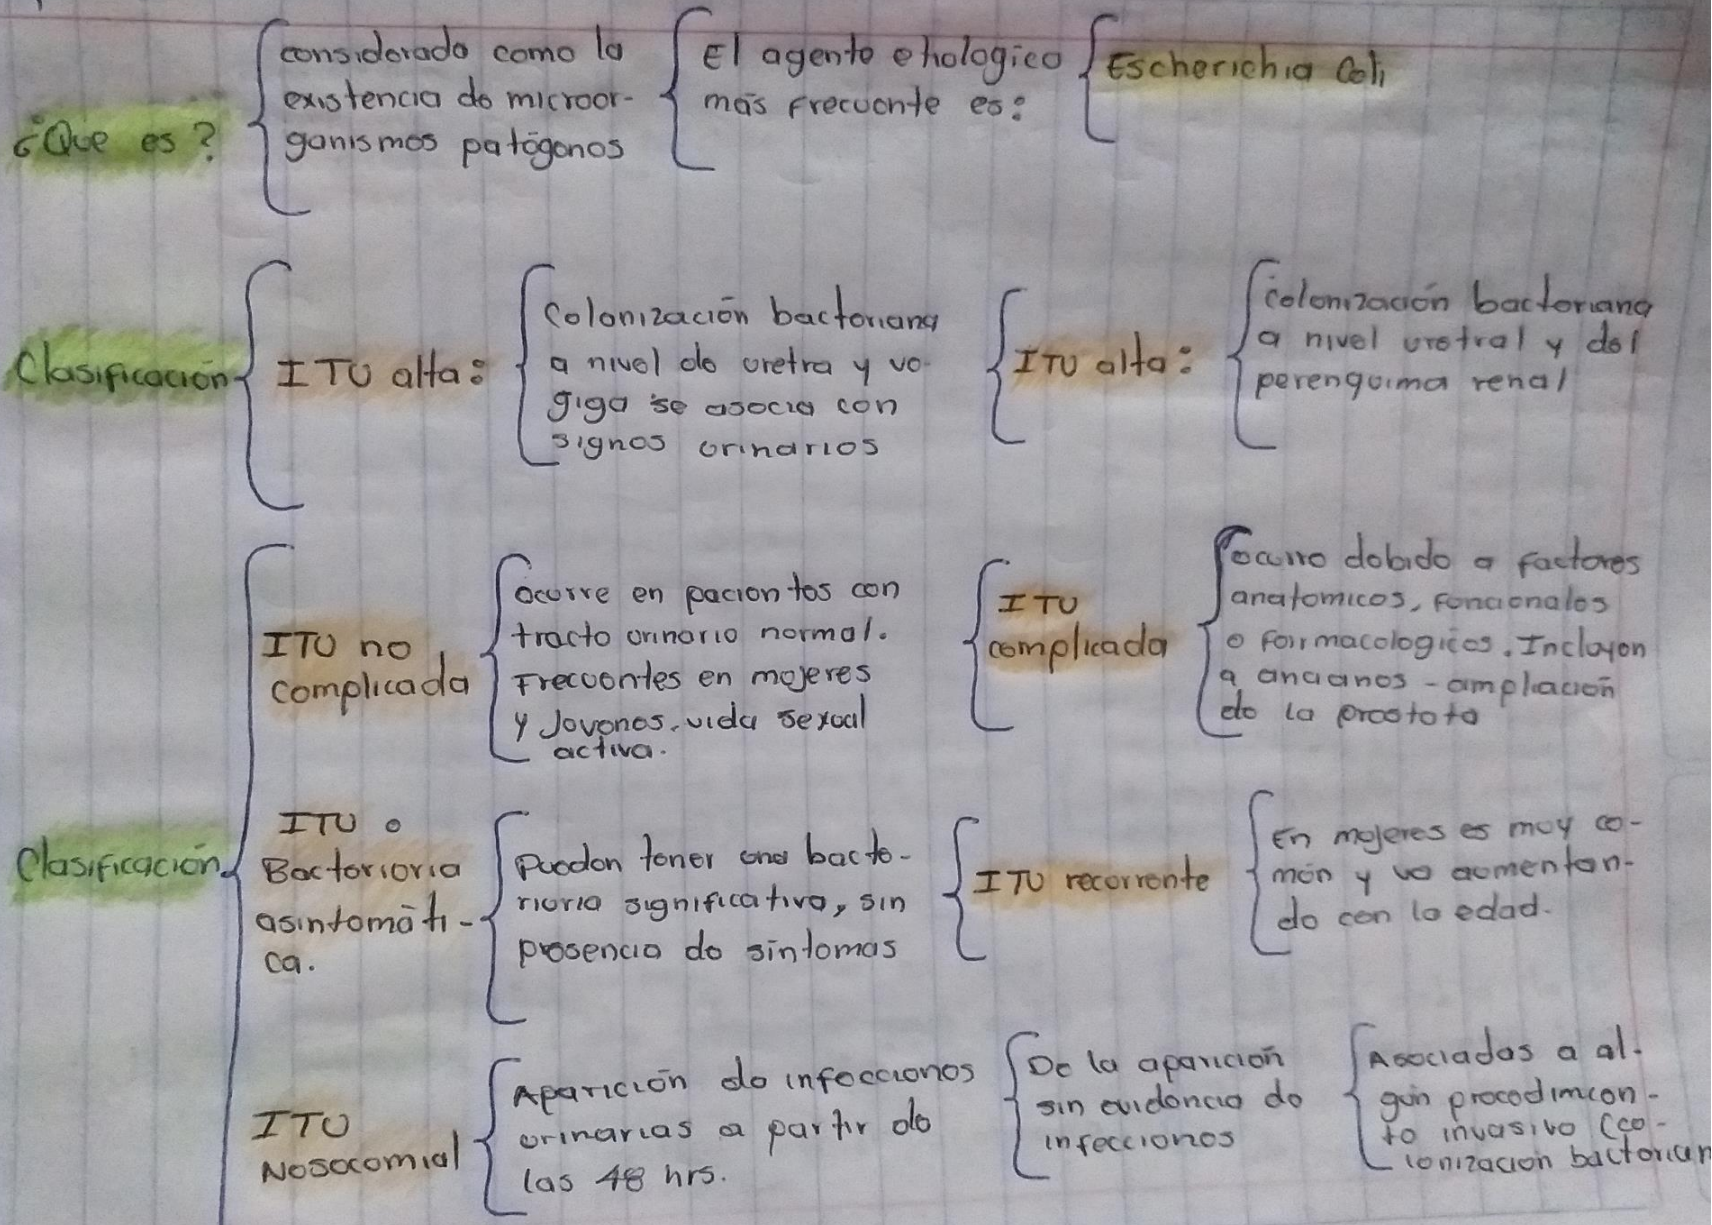 ¿Que es?
considerado como la
existencia de microor-
ganismos patógenos
El agente etiologico
más frecuente es:
Escherichia Coli
Clasificación
ITU alta:
Colonización bacteriana
a nivel de uretra y ve-
giga se asocia con
signos urinarios
ITU alta:
Colonización bacteriana
a nivel uretral y del
perenquima renal
Clasificación
ITU no
complicada
ocurre en pacientes con
tracto urinario normal.
Frecuentes en mujeres
y Jovenes, vida sexual
activa.
ITU
complicada
ocurre debido a factores
anatomicos, funcionales
o farmacologicos. Incluyen
a ancianos - ampliación
de la prostata
ITU o
Bacteriuria
asintomáti-
ca.
Pueden tener una bacte-
riuria significativa, sin
presencia de síntomas
ITU recurrente
En mujeres es muy co-
mún y va aumentan-
do con la edad.
ITU
Nosocomial
Aparición de infecciones
urinarias a partir de
las 48 hrs.
De la aparición
sin evidencia de
infecciones
Asociadas a al-
gún procedimien-
to invasivo (co-
lonización bacterian